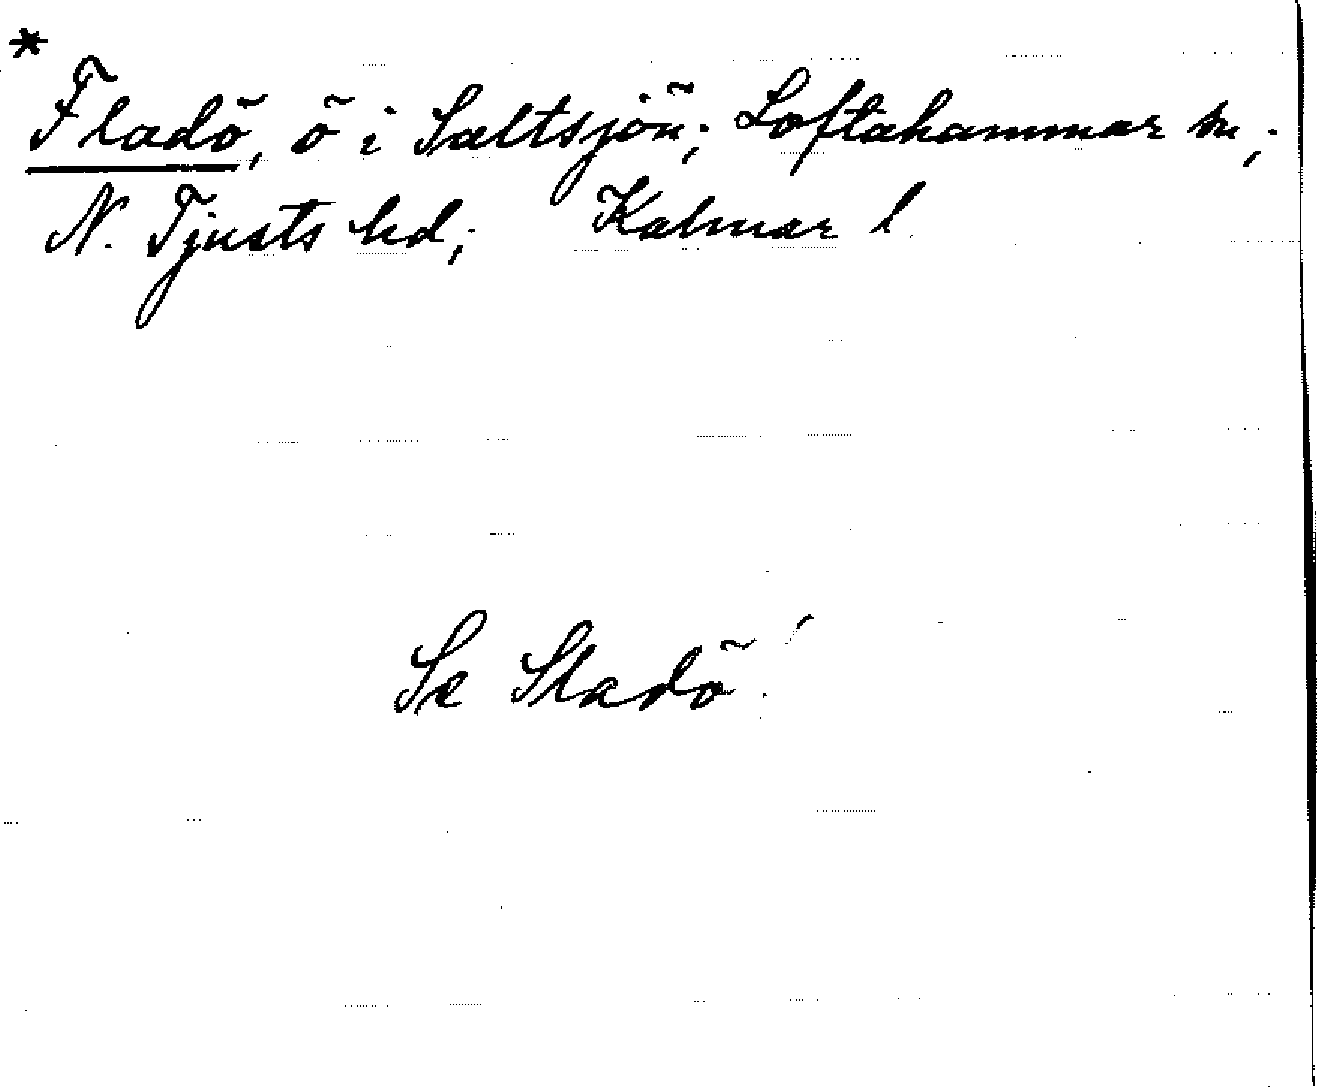 *
Fladö, ö i Saltsjön; Loftahammar sn;
N. Tjusts hd; Kalmar l.
Se Sladö!